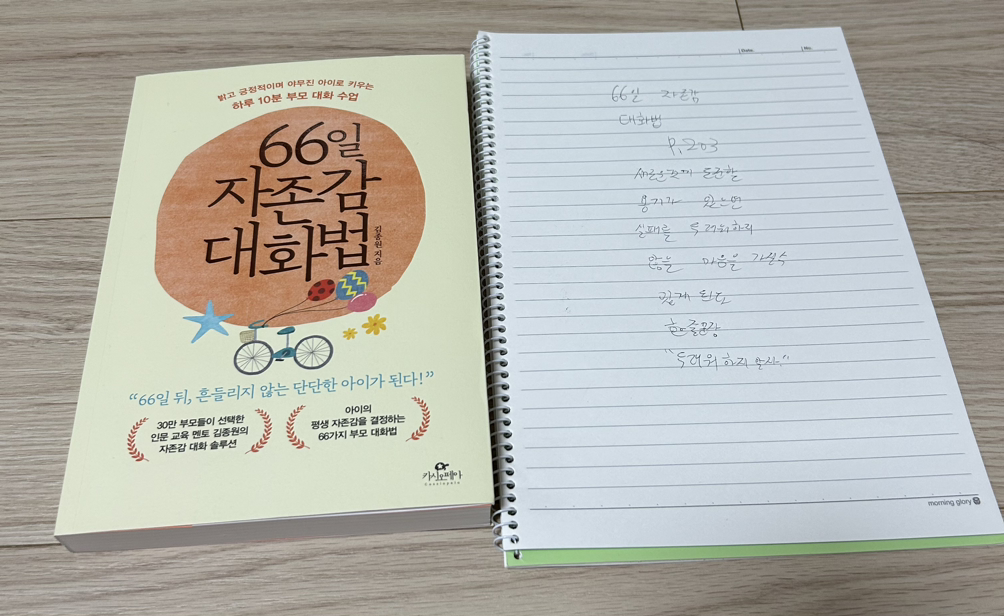 밝고 긍정적이며 야무진 아이로 키우는
하루 10분 부모 대화 수업
66일
자존감
대화법
김종원 지음
“66일 뒤, 흔들리지 않는 단단한 아이가 된다!”
30만 부모들이 선택한
인문 교육 멘토 김종원의
자존감 대화 솔루션
아이의
평생 자존감을 결정하는
66가지 부모 대화법
카시오페아
Cassiopeia
Date.
No.
66일 자존감
대화법
P. 203
새로운 것에 도전할
용기가 있으면
실패를 두려워하지
않을 마음을 가질수
있게 된다
한줄문장
"두려워 하지 말자"
morning glory